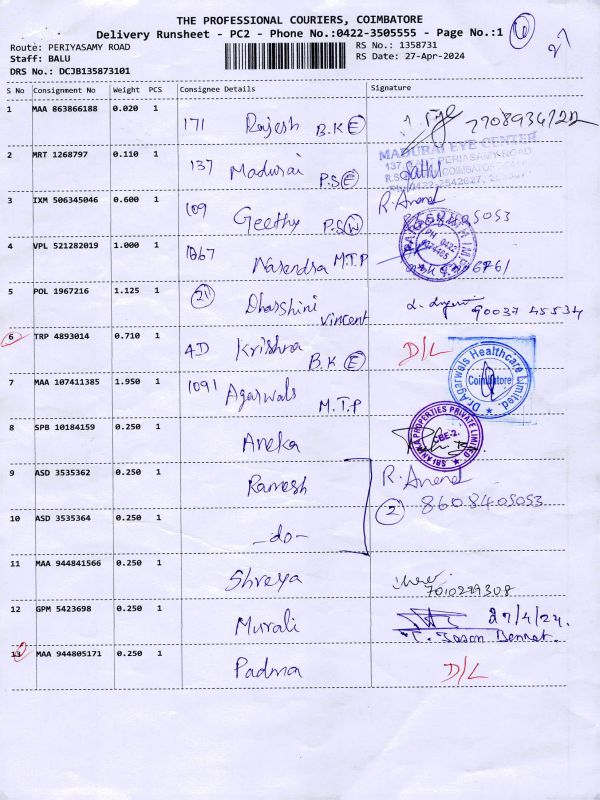 THE PROFESSIONAL COURIERS, COIMBATORE
Delivery Runsheet - PC2 - Phone No.:0422-3505555 - Page No.:1
Route: PERIYASAMY ROAD RS No.: 1358731
Staff: BALU RS Date: 27-Apr-2024
DRS No.: DCJB135873101
S No Consignment No Weight PCS Consignee Details Signature
1 MAA 863866188 0.020 1 171 Rajesh B.K E
2 MRT 1268797 0.110 1 137 Madurai P.S E
MADURAI EYE CENTER
3 IXM 506345046 0.600 1 109 Geethy P.S W R. Anand
4 VPL 521282019 1.000 1 Narendra M.T.P
5 POL 1967216 1.125 1 21 Dharshini Vincent 90037 45534
6 TRP 4893014 0.710 1 4D Krishna B.K E D/L
7 MAA 107411385 1.950 1 1091 Agarwals M.T.P
Dr.Agarwals Healthcare Limited.
Coimbatore
8 SPB 10184159 0.250 1 Aneka
PROPERTIES PRIVATE LIMITED
CBE-2.
9 ASD 3535362 0.250 1 Ramesh R. Anand
2 8608405053
10 ASD 3535364 0.250 1 -do-
11 MAA 944841566 0.250 1 Shreya
7010279308
12 GPM 5423698 0.250 1 Murali 27/4/24.
T. Jason Bennet.
13 MAA 944805171 0.250 1 Padma D/L